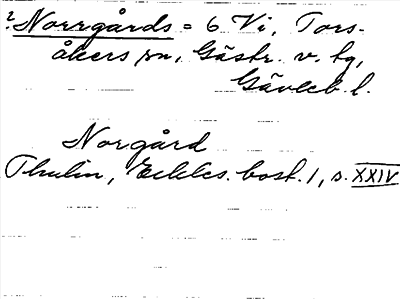 ? Norrgårds = 6 Vi, Tors-
åkers sn, Gästr. v. tg,
Gävleb. l.
Norgård
Thulin, Eckles. bost. 1, s. XXIV